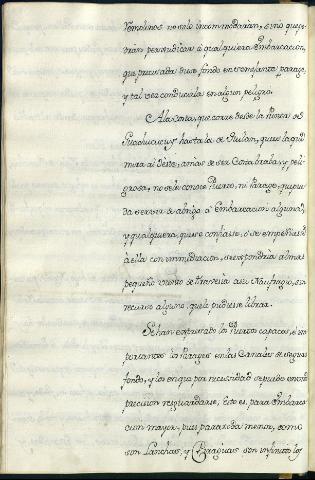 Vemolinos no solo incommodarian, sino que po-
drian perjudicar à qualquiera Embarcacion,
que precisada diese fondo en semejante parage,
y tal vez conducirla en algun peligro.
A la Costa, que corre desde la Punta de
hasta la de Quilan, que es la que
mira al Oeste, amas de ser Costa braba, y peli-
grosa, no se le conoce Puerto, ni Parage, que pue-
da servir de abrigo à Embarcacion alguna,
y qualquiera, que se confiase, ò se empeñase
à ella con inmediacion, se expondria al mas
pequeño viento de travesia à su Naufragio, sin
recurso alguno, que la pudiese librar.
Se han expresado los Puertos capaces, è im-
portantes los Parages en las Canales de seguro
fondo, y los en que por necesidad se puede
precision resguardarse, esto es, para Embarca-
cion mayor, pues para toda menor, como
son Lanchas, y Piraguas son infinitos los